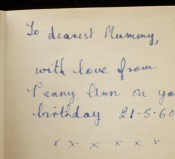 To dearest Mummy,
with love from
Penny Ann on yo
birthday 21-5-60
x x x x x x